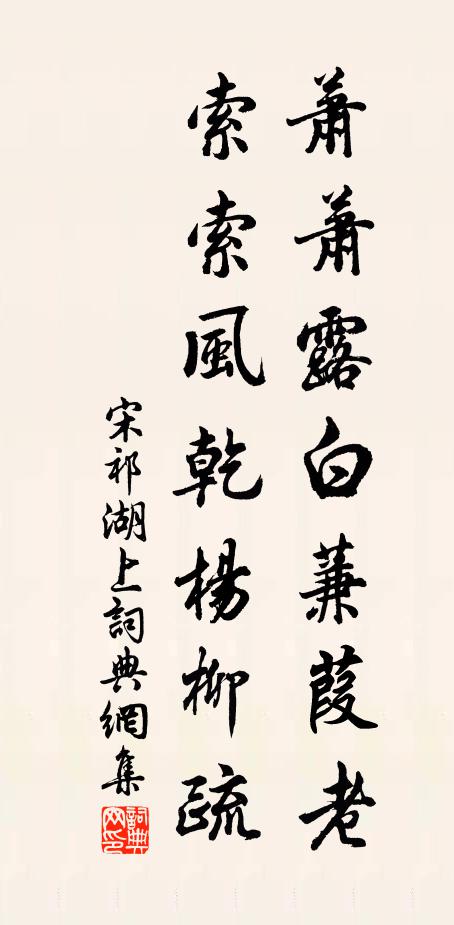 蕭蕭露白蒹葭老
索索風乾楊柳疏
宋祁湖上詞典網集
詞典網印